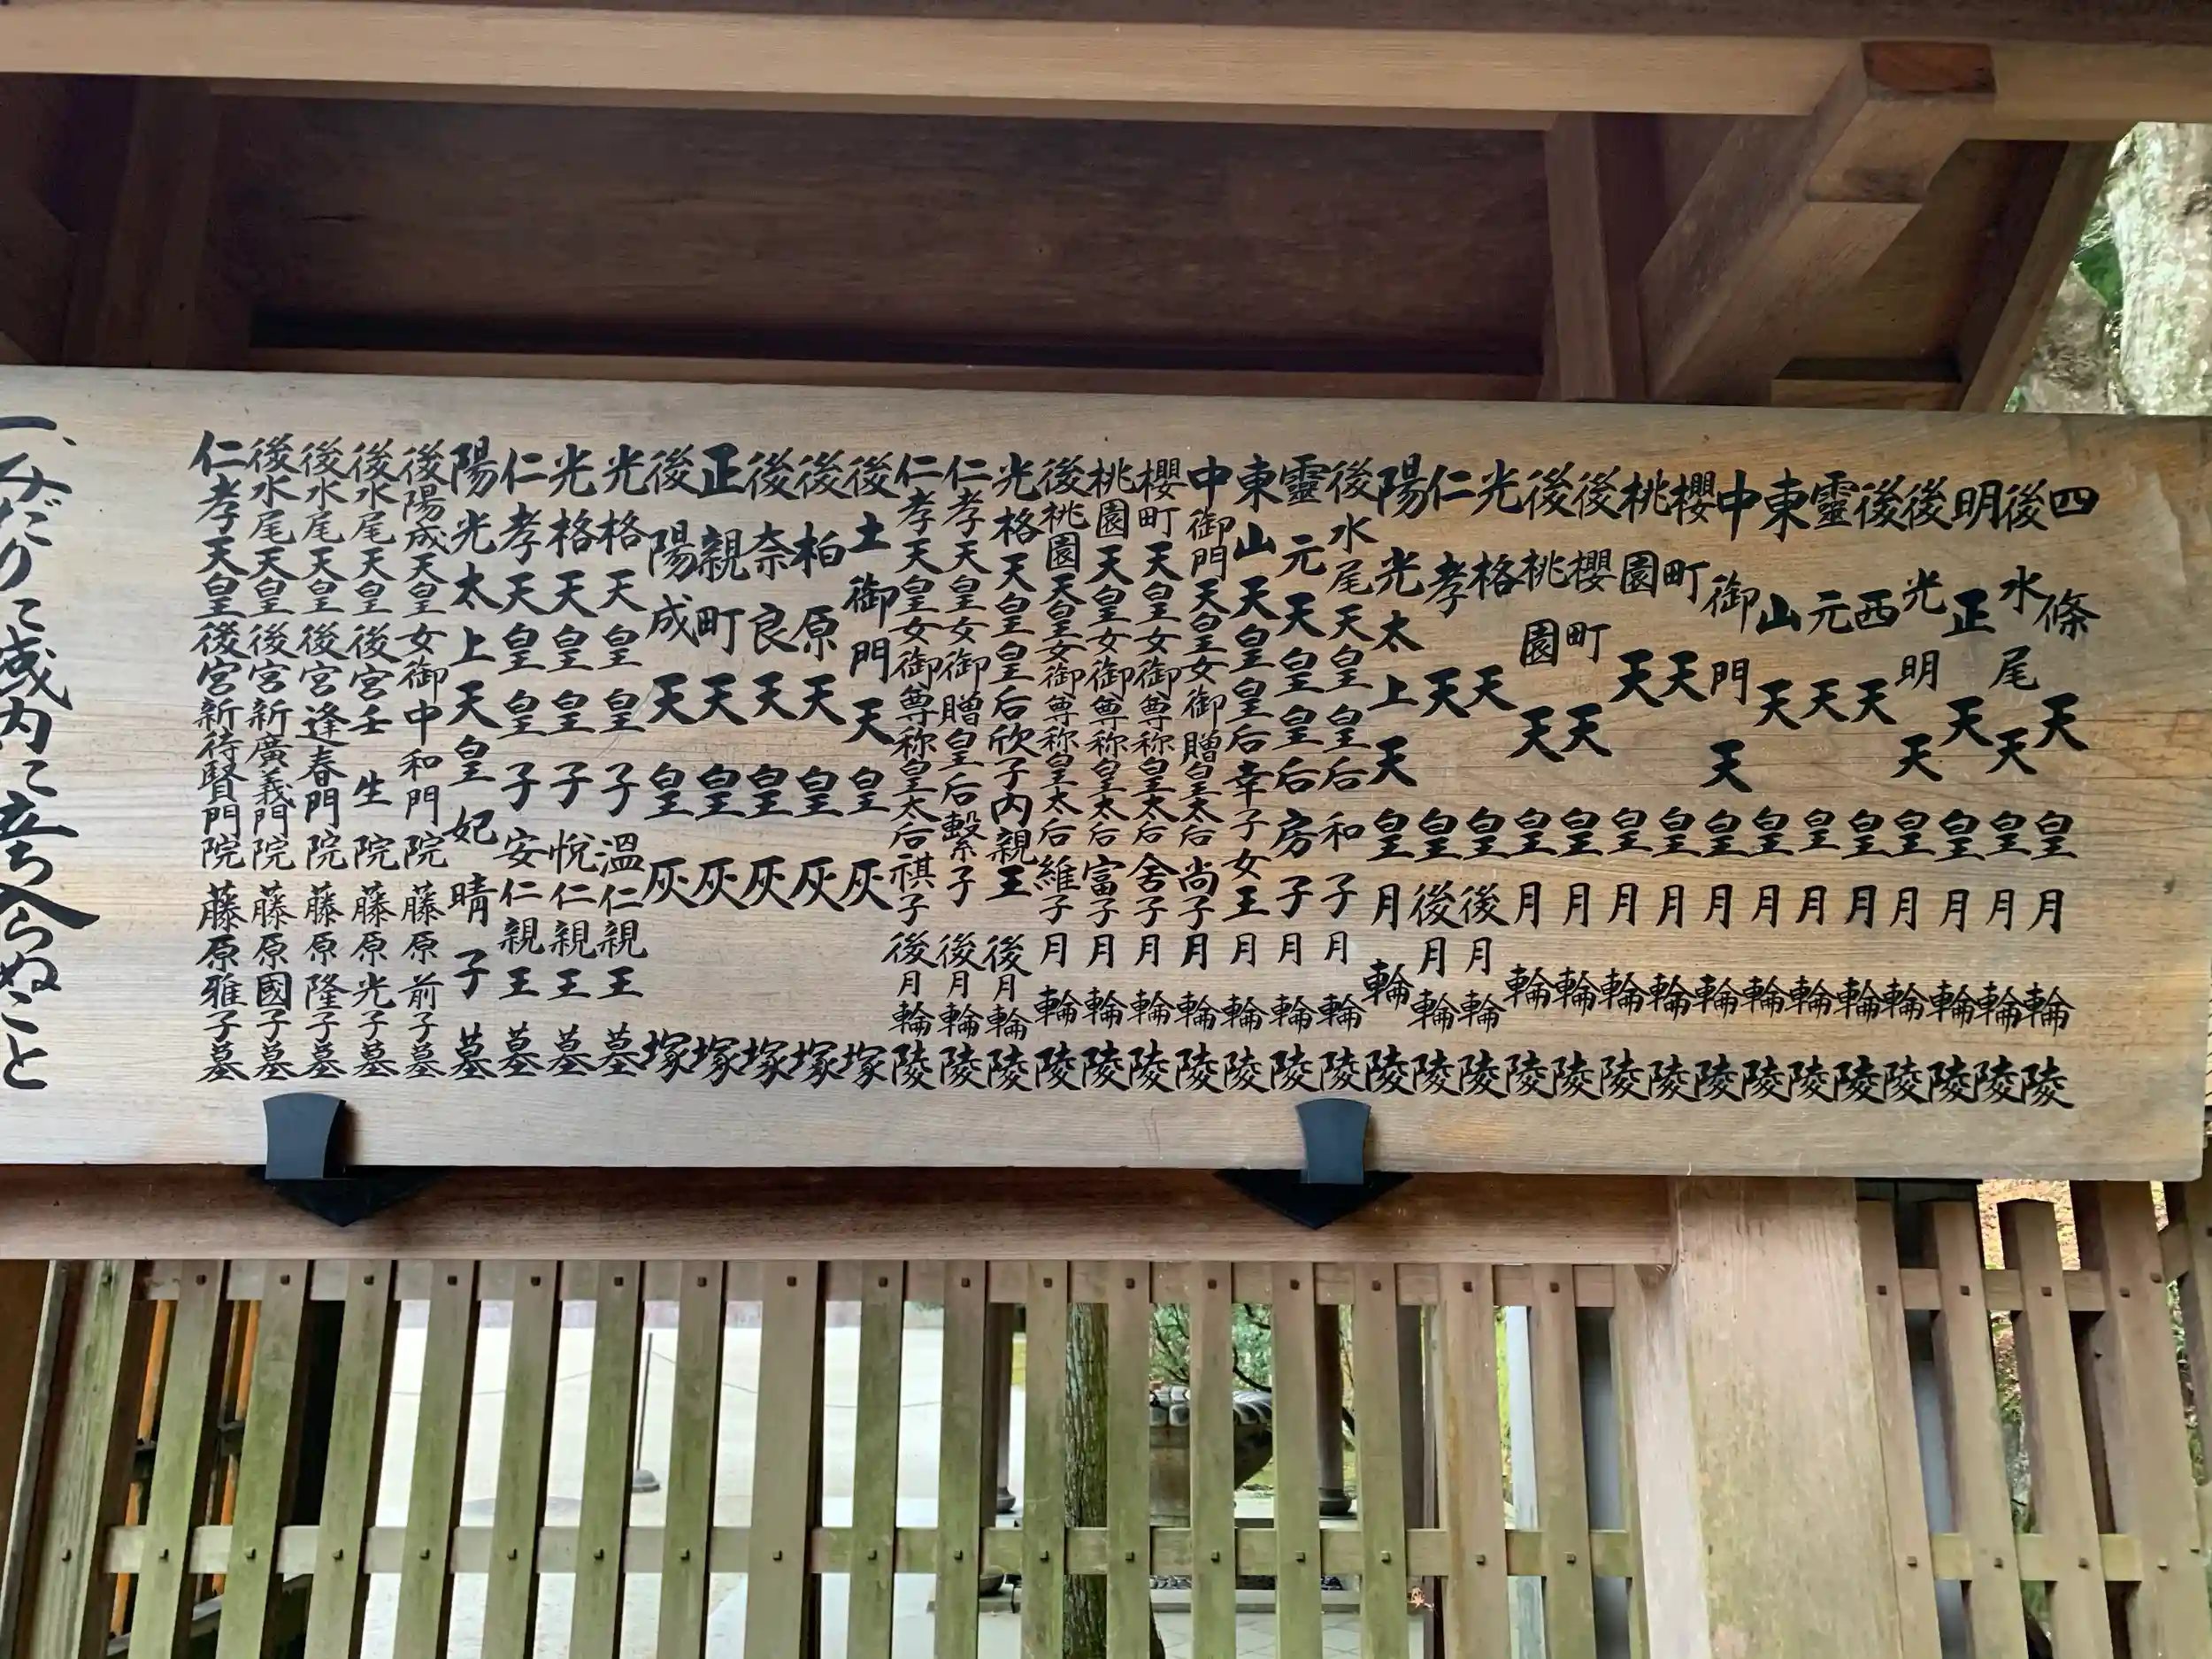 四條天皇月輪陵
後水尾天皇月輪陵
明正天皇月輪陵
後光明天皇月輪陵
後西天皇月輪陵
靈元天皇月輪陵
東山天皇月輪陵
中御門天皇月輪陵
櫻町天皇月輪陵
桃園天皇月輪陵
後櫻町天皇月輪陵
後桃園天皇月輪陵
光格天皇後月輪陵
仁孝天皇後月輪陵
陽光太上天皇月輪陵
後水尾天皇皇后和子月輪陵
靈元天皇皇后房子月輪陵
東山天皇皇后幸子女王月輪陵
中御門天皇女御贈皇太后尚子月輪陵
櫻町天皇女御尊称皇太后舍子月輪陵
桃園天皇女御尊称皇太后富子月輪陵
後桃園天皇女御尊称皇太后維子月輪陵
光格天皇皇后欣子内親王後月輪陵
仁孝天皇女御贈皇后繫子後月輪陵
仁孝天皇女御尊称皇太后祺子後月輪陵
後土御門天皇灰塚
後柏原天皇灰塚
後奈良天皇灰塚
正親町天皇灰塚
後陽成天皇灰塚
光格天皇皇子溫仁親王墓
光格天皇皇子悅仁親王墓
仁孝天皇皇子安仁親王墓
陽光太上天皇妃晴子墓
後陽成天皇女御中和門院藤原前子墓
後水尾天皇後宮壬生院藤原光子墓
後水尾天皇後宮逢春門院藤原隆子墓
後水尾天皇後宮新廣義門院藤原國子墓
仁孝天皇後宮新待賢門院藤原雅子墓
一、みだりに域内に立ち入らぬこと